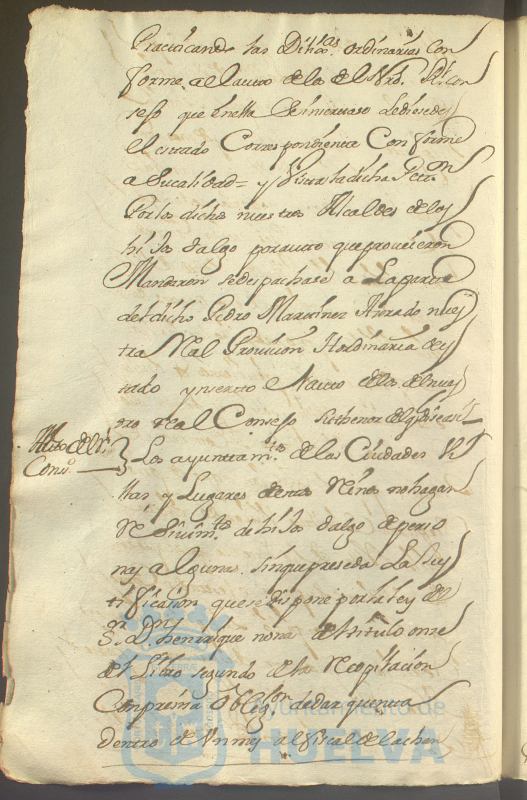 Practicando las Dilig.as ordinarias con
forme al auto de los del Nro. Rl. con
sejo que en ella se incertase se diese des
el estado Correspondiente Conforme
a su calidad = y Vista la dicha Petn.
Por los dichos nuestros Alcaldes de los
hijos dalgo por auto que proveieron
Mandaron se despachase a la parte
del dicho Pedro Martinez Jurado nues
tra Real Provision Hordinaria de es
tado y inserto el auto de los del nues
tro real Consejo su thenor del qual dise asi
Auto del Rl.
Consº.
Los ayuntam.tos de las Ciudades Vi
llas y Lugares destos Reinos no hagan
Resivim.tos de hijos dalgo de perso
nas algunas sin que preseda La Jus
tificasion que se dispone por la ley del
Sr. Dn. henrrique nona del titulo onse
del Libro segundo de la Recopilacion
Con presisa Oblig.on de dar quenta
dentro de Un mes al fiscal de la chan
Ayuntamiento de
HUELVA